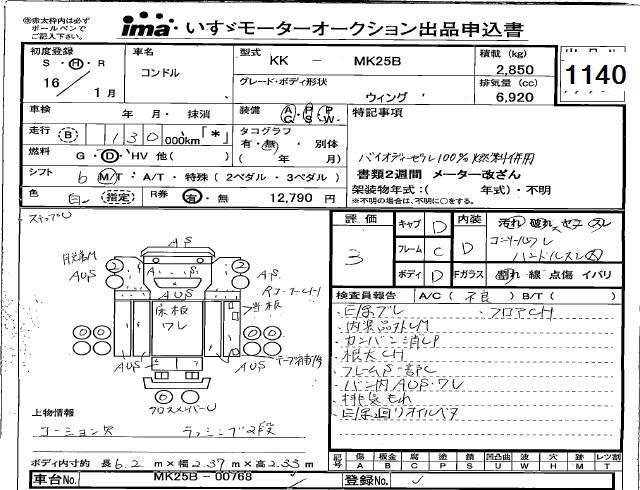 ※赤太枠内は必ず
ボールペンで
ご記入下さい。
ima いすゞモーターオークション出品申込書
初度登録 S・H・R 16 / 1月
車名 コンドル
型式 KK - MK25B
積載 (kg) 2,850
グレード・ボディ形状 ウィング
排気量 (cc) 6,920
1140
車検 年・月・抹消
装備 AC・PS・PW
特記事項
走行 B 1130 000km「*」
タコグラフ 有・無 別体 ( 年 月)
燃料 G・D・HV 他( )
バイオディーゼル100%燃料併用
書類2週間 メーター改ざん
シフト 6 M/T・A/T・特殊(2ペダル・3ペダル)
架装物年式:( 年式)・不明
※不明の場合は、不明に○をする。
色 白 指定
R券 有・無 12,790 円
ステップU
評価 3
キャブ D
フレーム C
ボディ D
内装 D
汚れ 破れ ヤニ スレ
ハンドルスレ大
Fガラス 割れ・線・点傷・イバリ
AS
AUS
AUS
床板
ワレ
AUS
AUS
クロスメンバーU
検査員報告 A/C(不良) B/T( )
・フロアCH
・内装品外しM
・カンバン消しP
・根太CH
・フレームS一部C
・バン内AUS・ワレ
・排気もれ
上物情報
コーション欠 ラッシング2段
ボディ内寸約 長6.2m×幅2.37m×高2.33m
記号 傷 A 板金 B 腐 C 塗 P 錆 S 凹凸曲 U 波 W 穴 H 跡 M レツ割 T
車台No. MK25B-00768
登録No.